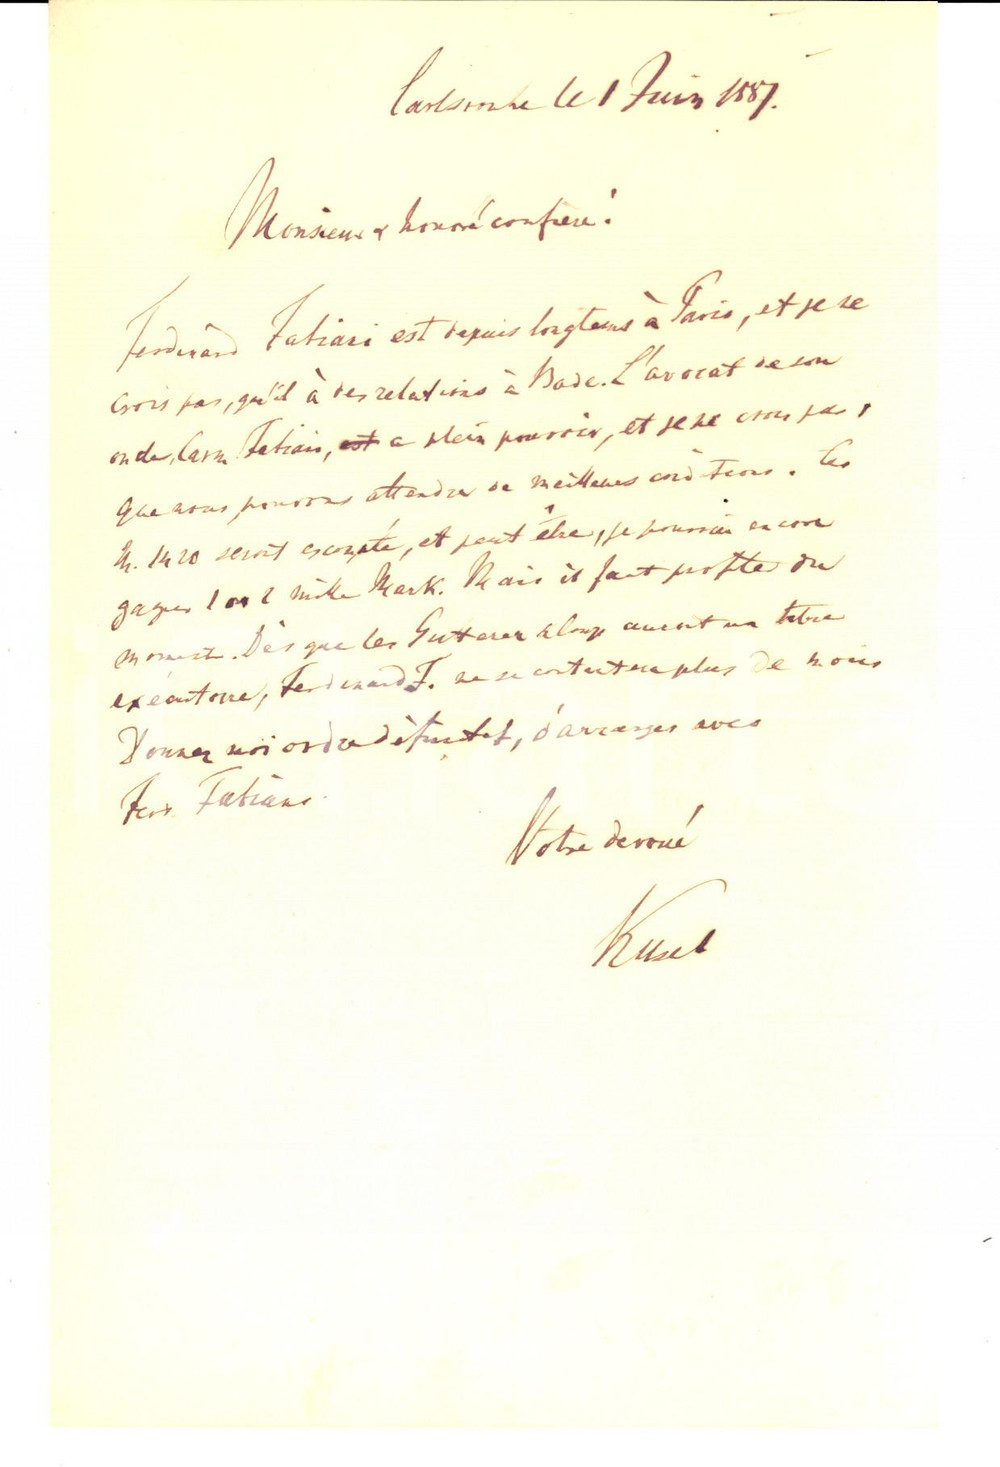 Carlsruhe le 1 Juin 1887.
Monsieur & honoré confrère!
Ferdinand Fabiani est depuis longtems à Paris, et je ne
crois pas, qu'il à des relations à Bade. L'avocat de son
oncle, Fabiani, est a plein pouvoir, et je ne crois pas,
que nous pouvons attendre de meilleures conditions. Les
M. 1420 seront escompté, et peut être, je pourrai encore
gagner 1 ou 2 mille Mark. Mais il faut profiter du
moment. Dès que les auront un titre
exécutoire, Ferdinand F. ne se contentera plus de moins
Donnez moi ordre définitif, d'arranger avec
Ferd. Fabiani.
Votre devoué
Kusel